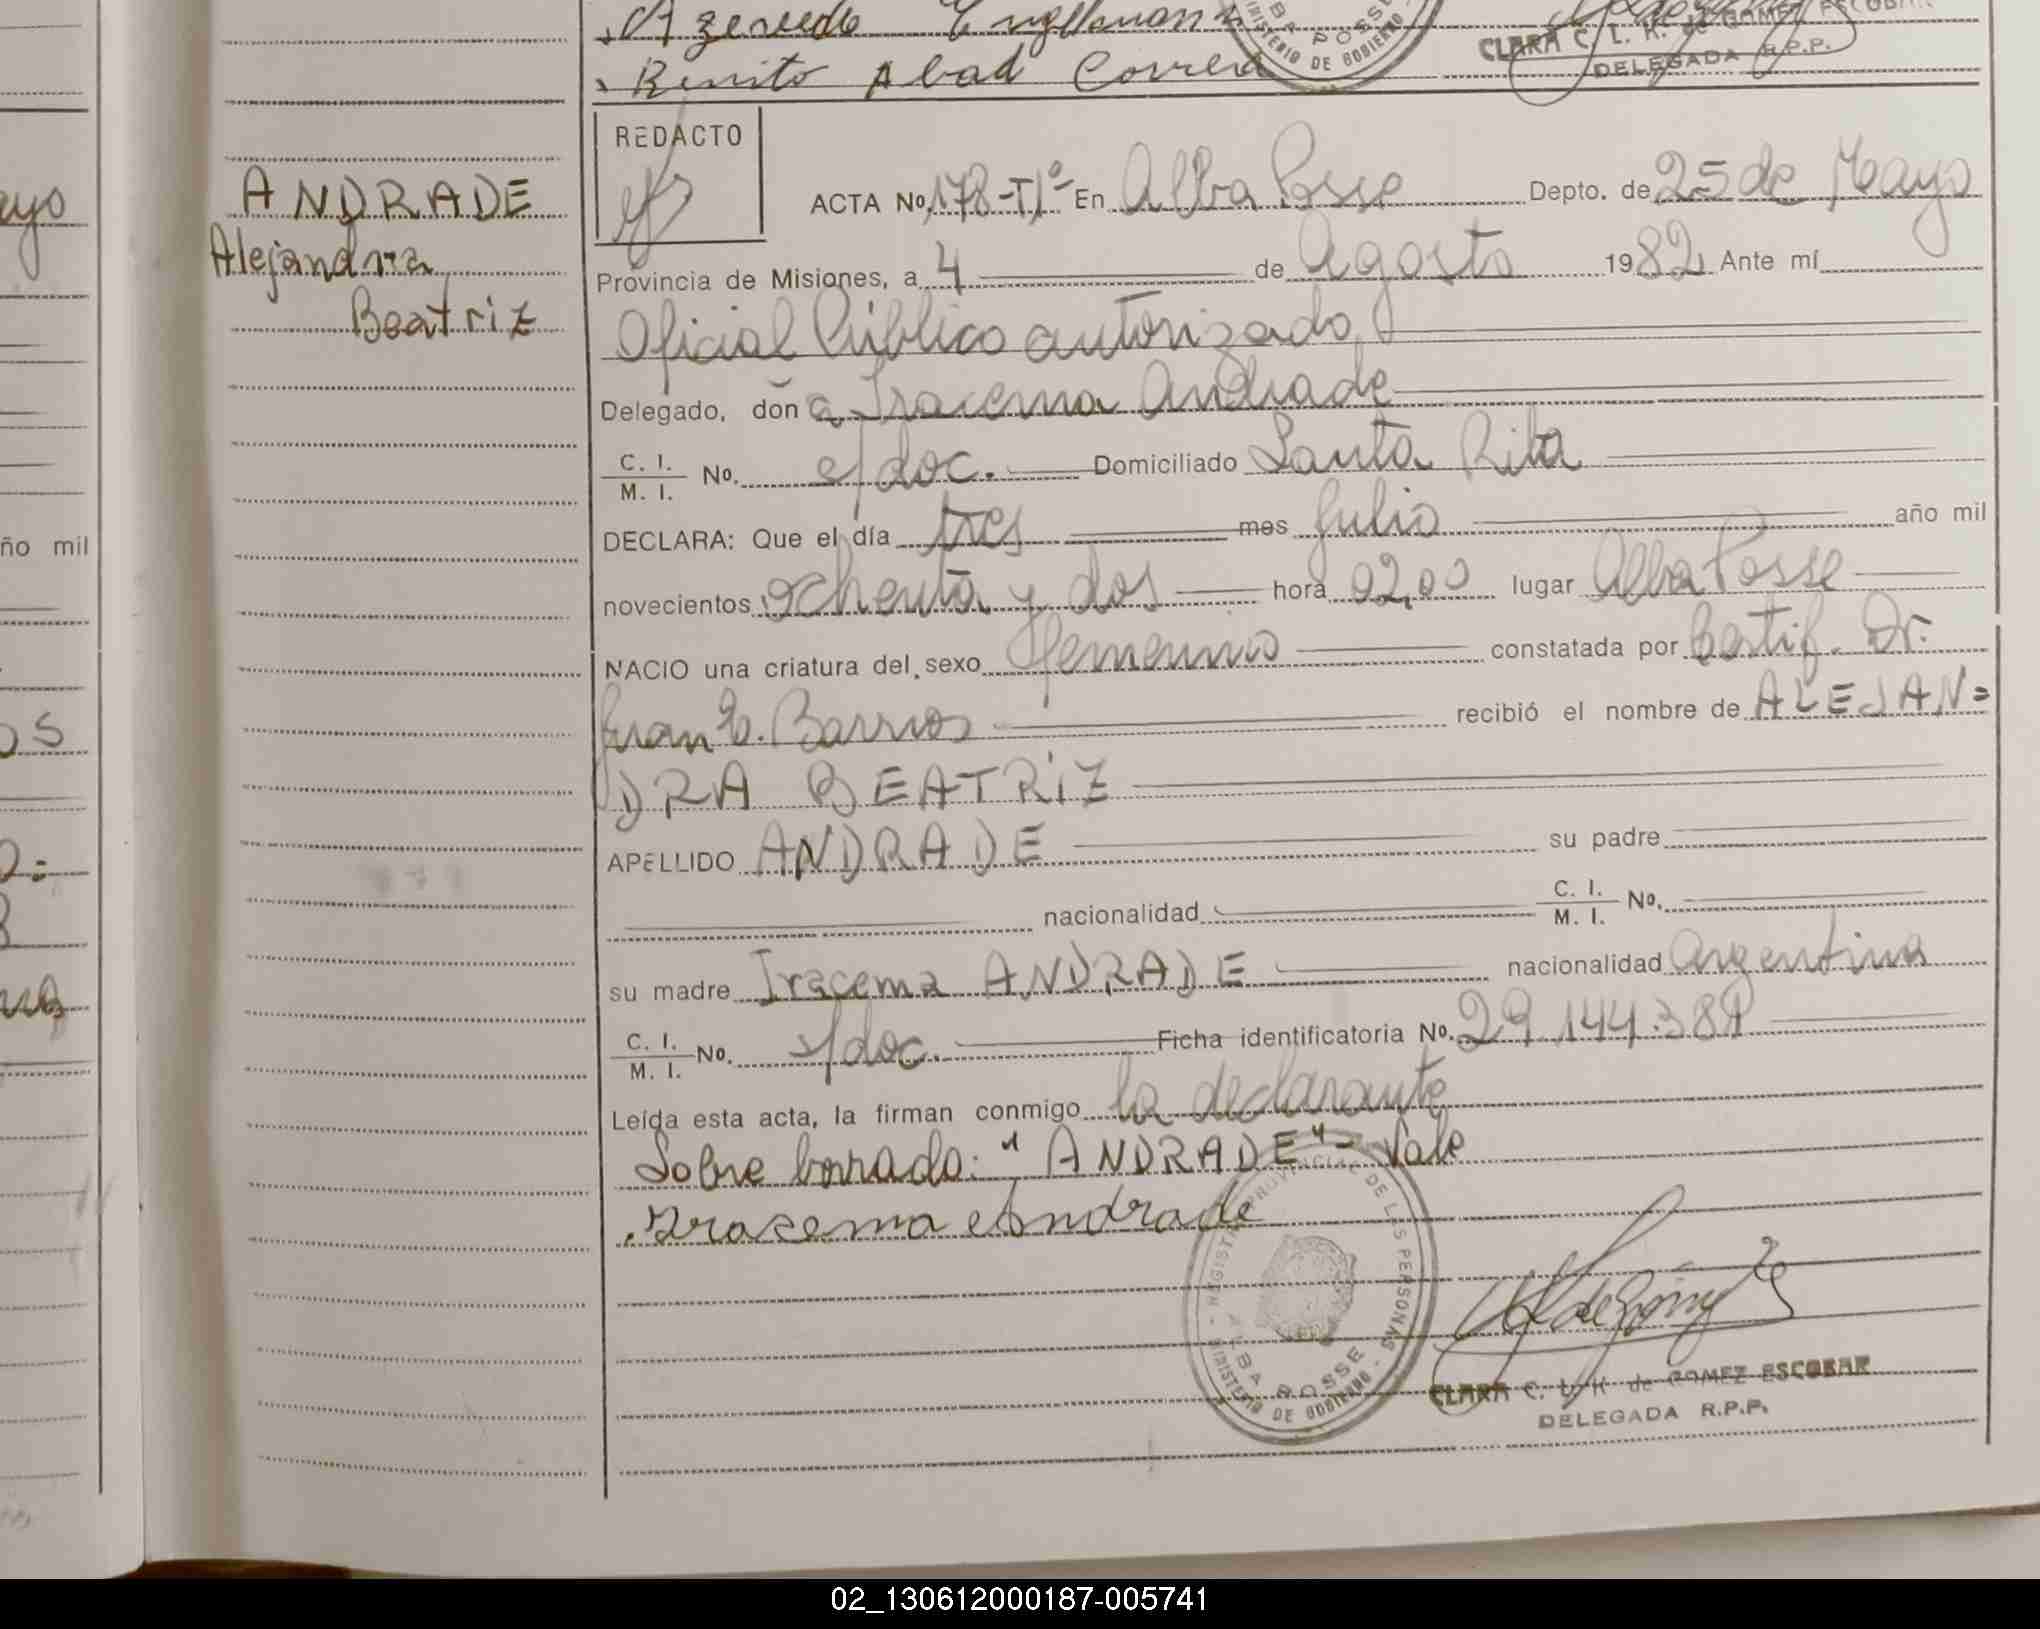 Azevedo Engelmann
Benito Abad Correa
BA POSSE
MINISTERIO DE GOBIERNO
CLARA C. L. K. de GOMEZ ESCOBAR
DELEGADA R.P.P.
REDACTO
ANDRADE
Alejandra
Beatriz
ACTA No. 178-T1º- En Alba Posse Depto. de 25 de Mayo
Provincia de Misiones, a 4 de Agosto 1982 Ante mí
Oficial Público autorizado
Delegado, doña Iracema Andrade
C. I.
M. I. No. s/doc. Domiciliado Santa Rita
DECLARA: Que el día tres mes Julio año mil
novecientos ochenta y dos hora 02,00 lugar Alba Posse
NACIO una criatura del sexo femenino constatada por Certif. Dr.
Juan Barrios recibió el nombre de ALEJAN=
DRA BEATRIZ
APELLIDO ANDRADE su padre
nacionalidad C. I.
M. I. No.
su madre Iracema ANDRADE nacionalidad argentina
C. I.
M. I. No. s/doc. Ficha identificatoria No. 29.144.389
Leída esta acta, la firman conmigo la declarante
Sobre borrado: "ANDRADE" - Vale
Irasema Andrade
REGISTRO PROVINCIAL DE LAS PERSONAS
ALBA POSSE
MINISTERIO DE GOBIERNO
CLARA C. L. K. de GOMEZ ESCOBAR
DELEGADA R.P.P.
ayo
ño mil
OS
02_130612000187-005741